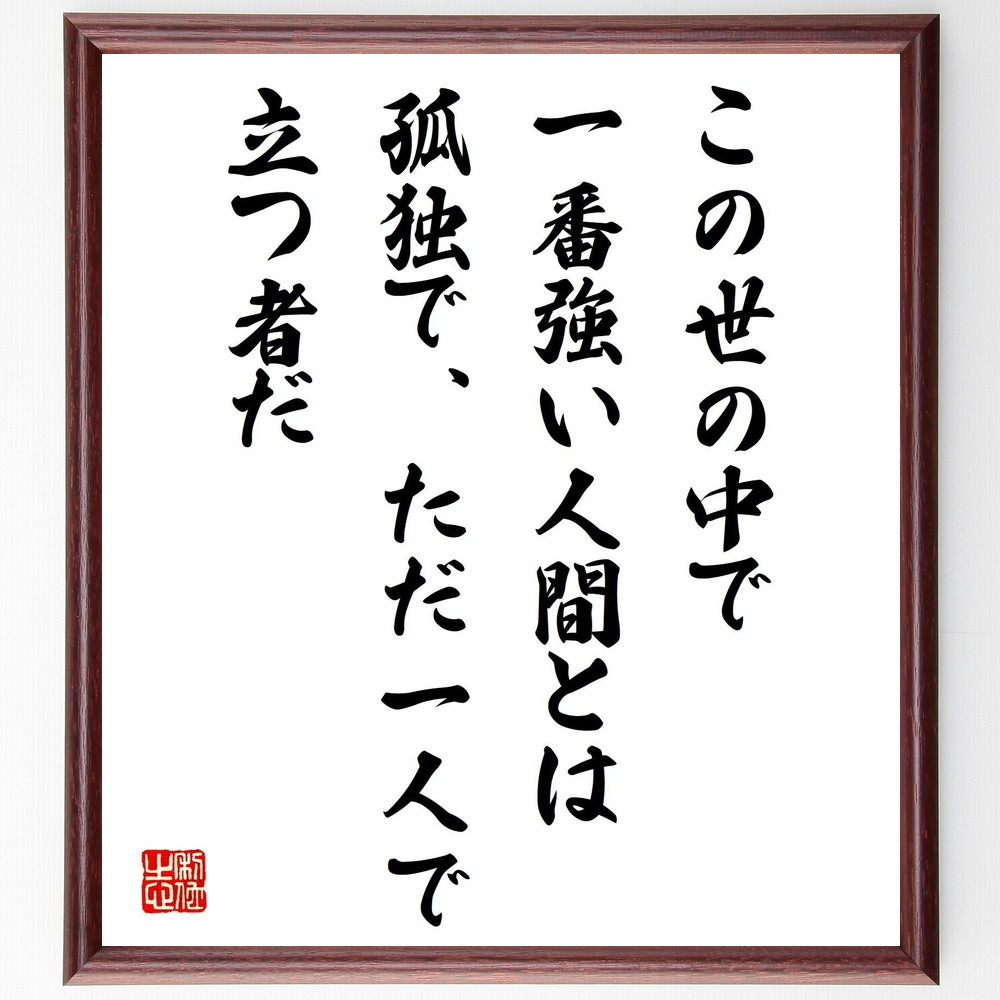 この世の中で
一番強い人間とは
孤独で、ただ一人で
立つ者だ